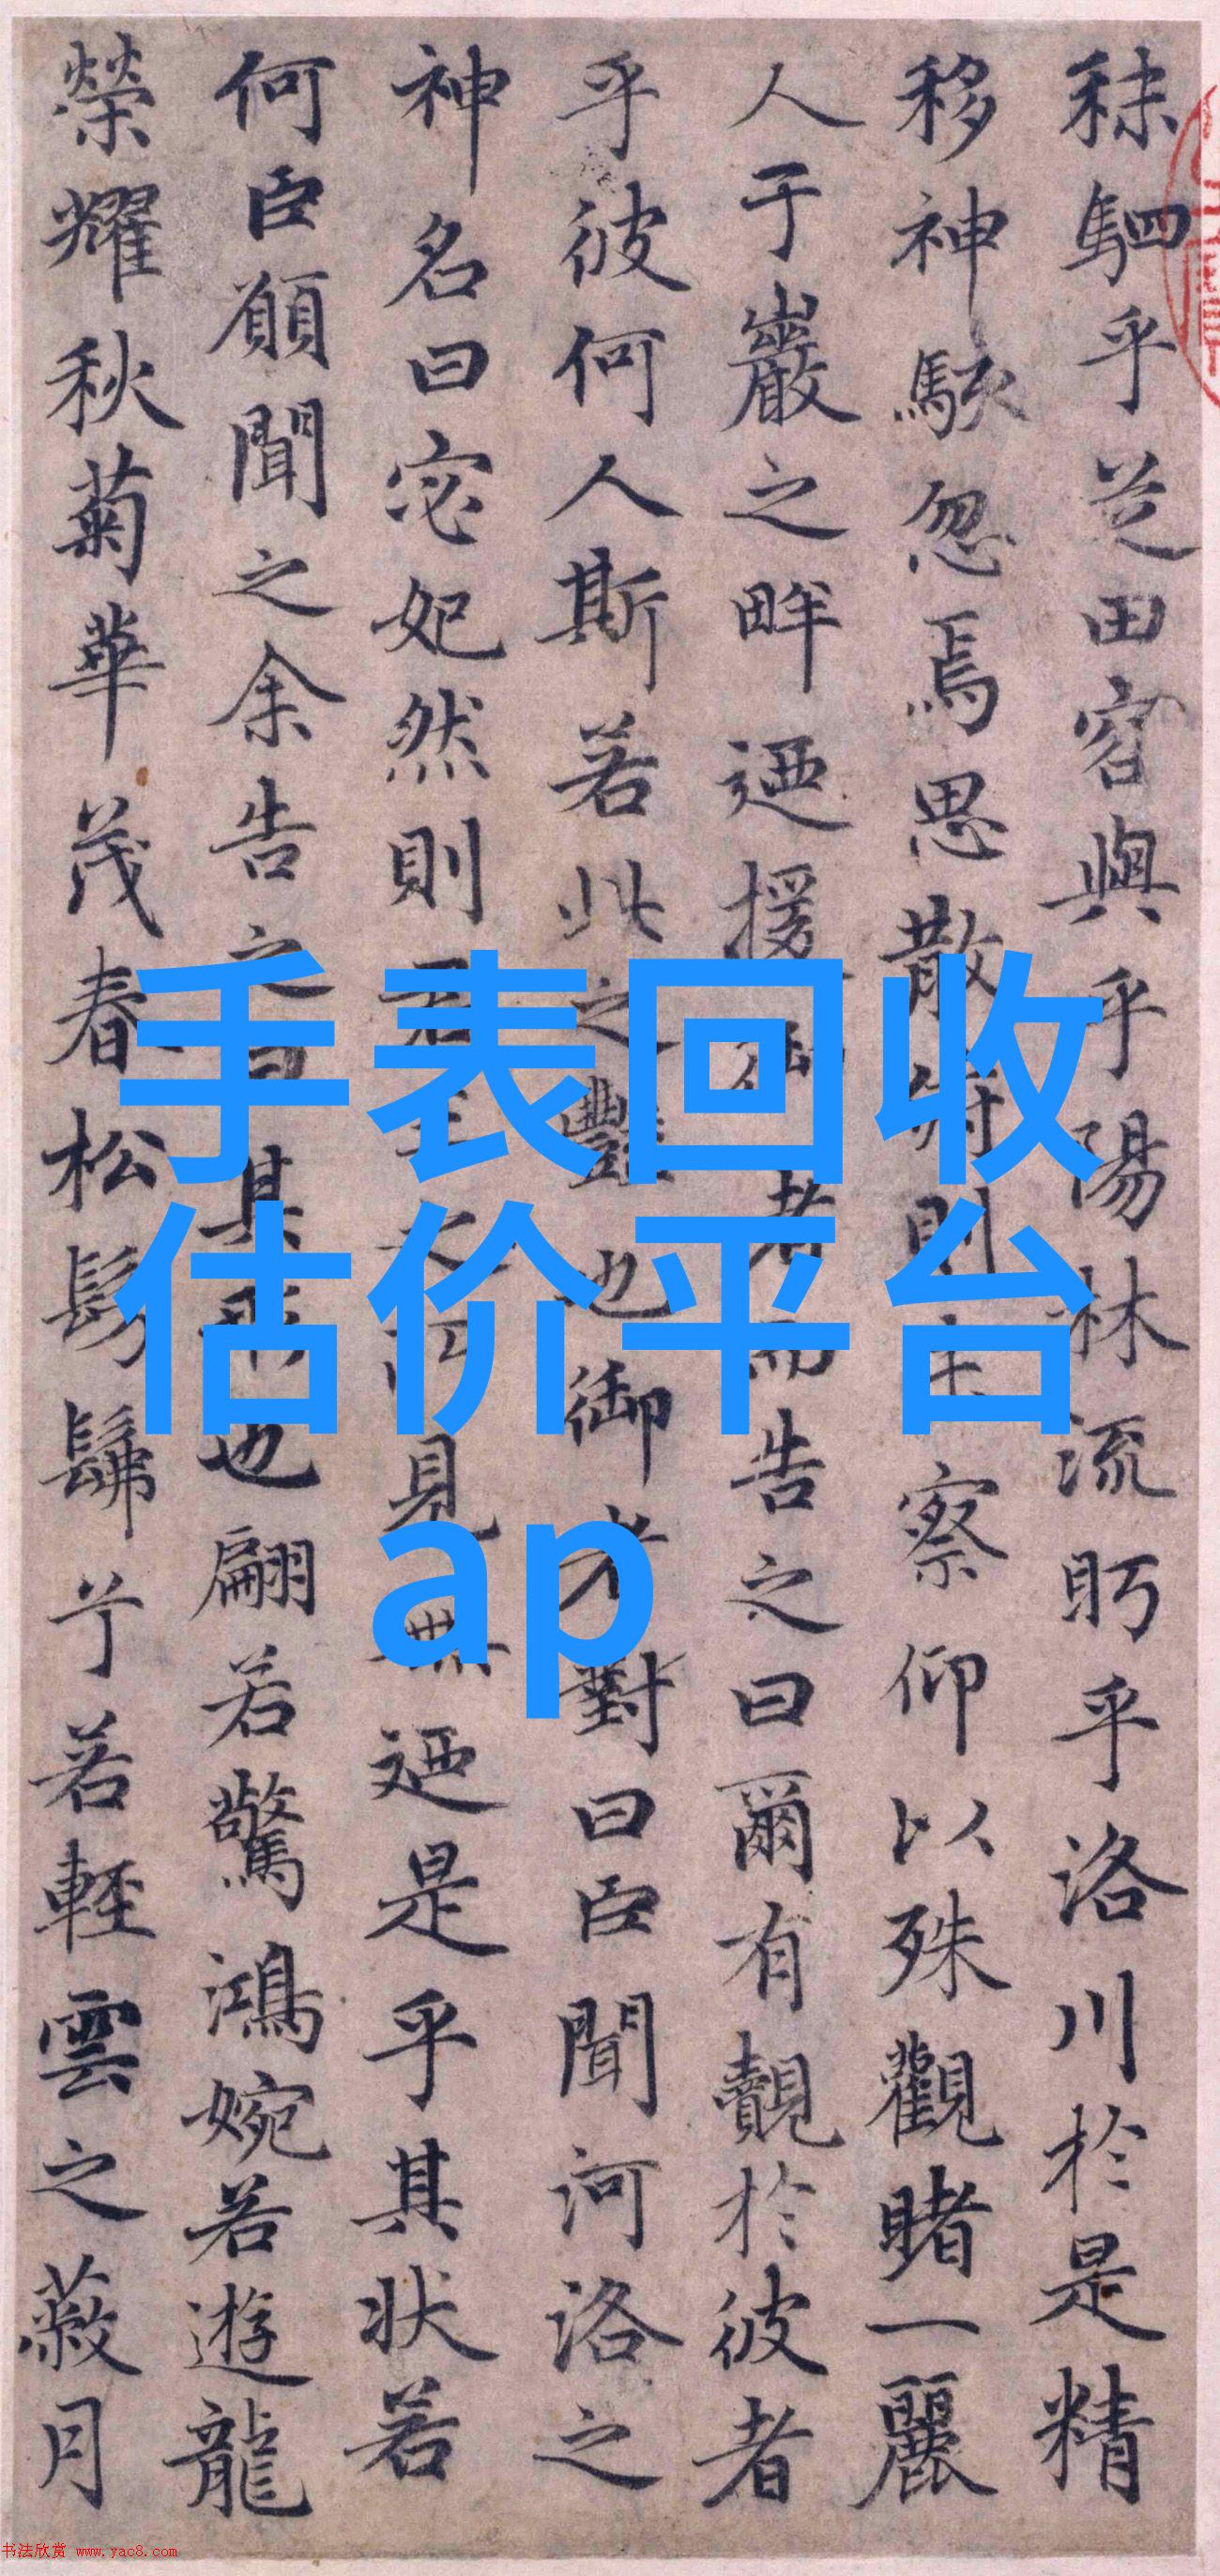 秣駟乎芝田容與乎陽林流眄乎洛川於是精
移神駭忽焉思散俯則未察仰以殊觀睹一麗
人于巖之畔迺援御者而告之曰爾有覿於彼者
乎彼何人斯若此之豔也御者對曰臣聞河洛之
神名曰宓妃然則君王之所見無迺是乎其狀若
何臣願聞之余告之曰其形也翩若驚鴻婉若遊龍
榮耀秋菊華茂春松髣髴兮若輕雲之蔽月
手表回收
估价平台
ap
书法欣赏 www.yac8.com